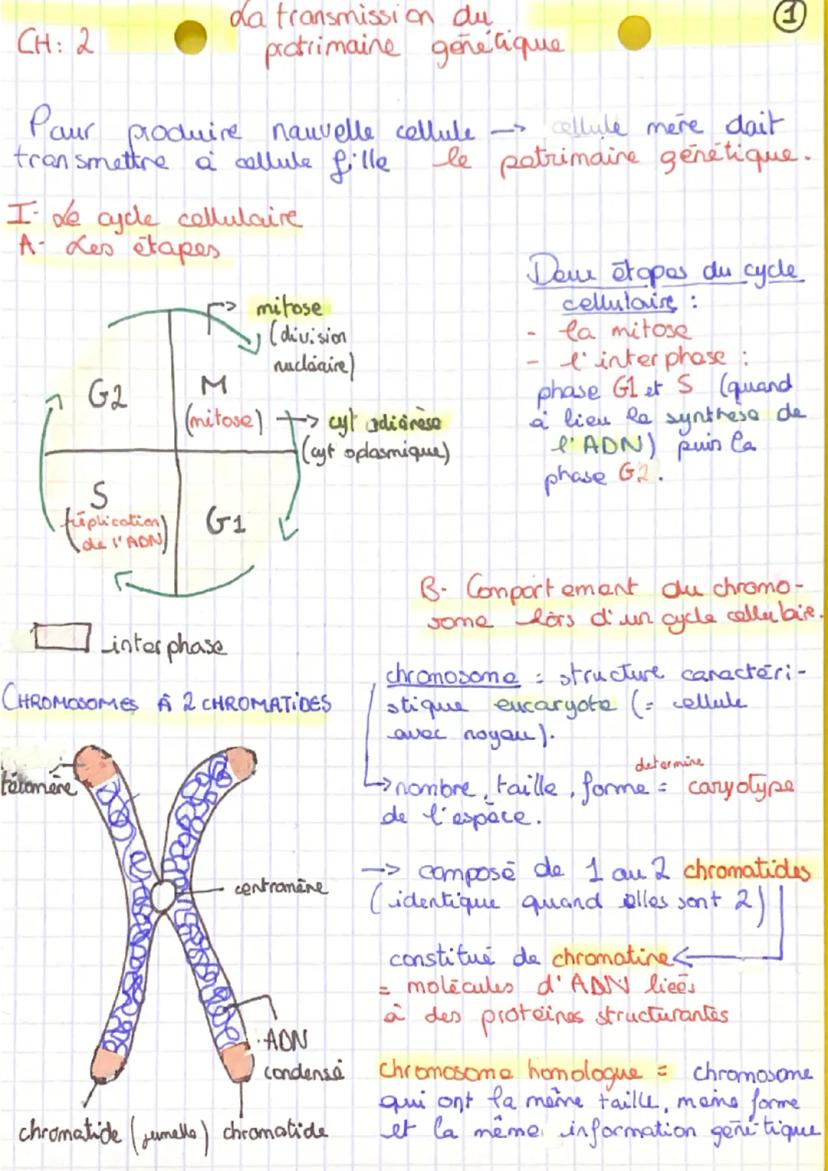 1
CH: 2
La transmission du
patrimoine génétique
Pour produire nouvelle cellule → cellule mère doit
transmettre à cellule fille le patrimoine génétique.
I- Le cycle cellulaire
A- Les étapes
Deux étapes du cycle
cellulaire :
- la mitose
- l'interphase :
phase G1 et S (quand
à lieu la synthèse de
l'ADN) puis la
phase G2.
mitose
(division
nucléaire)
G2
M
(mitose)
cytodiérèse
(cytoplasmique)
S
(réplication
de l'ADN)
G1
interphase
B- Comportement du chromo-
some lors d'un cycle cellulaire.
CHROMOSOMES À 2 CHROMATIDES
télomère
centromère
ADN
condensé
chromatide (jumelle) chromatide
chromosome = structure caractéri-
stique eucaryote (= cellule
avec noyau).
→ nombre, taille, forme = détermine caryotype
de l'espèce.
→ composé de 1 ou 2 chromatides
(identique quand elles sont 2)
constitué de chromatine
= molécules d'ADN liées
à des protéines structurantes
chromosome homologue = chromosome
qui ont la même taille, même forme
et la même information génétique